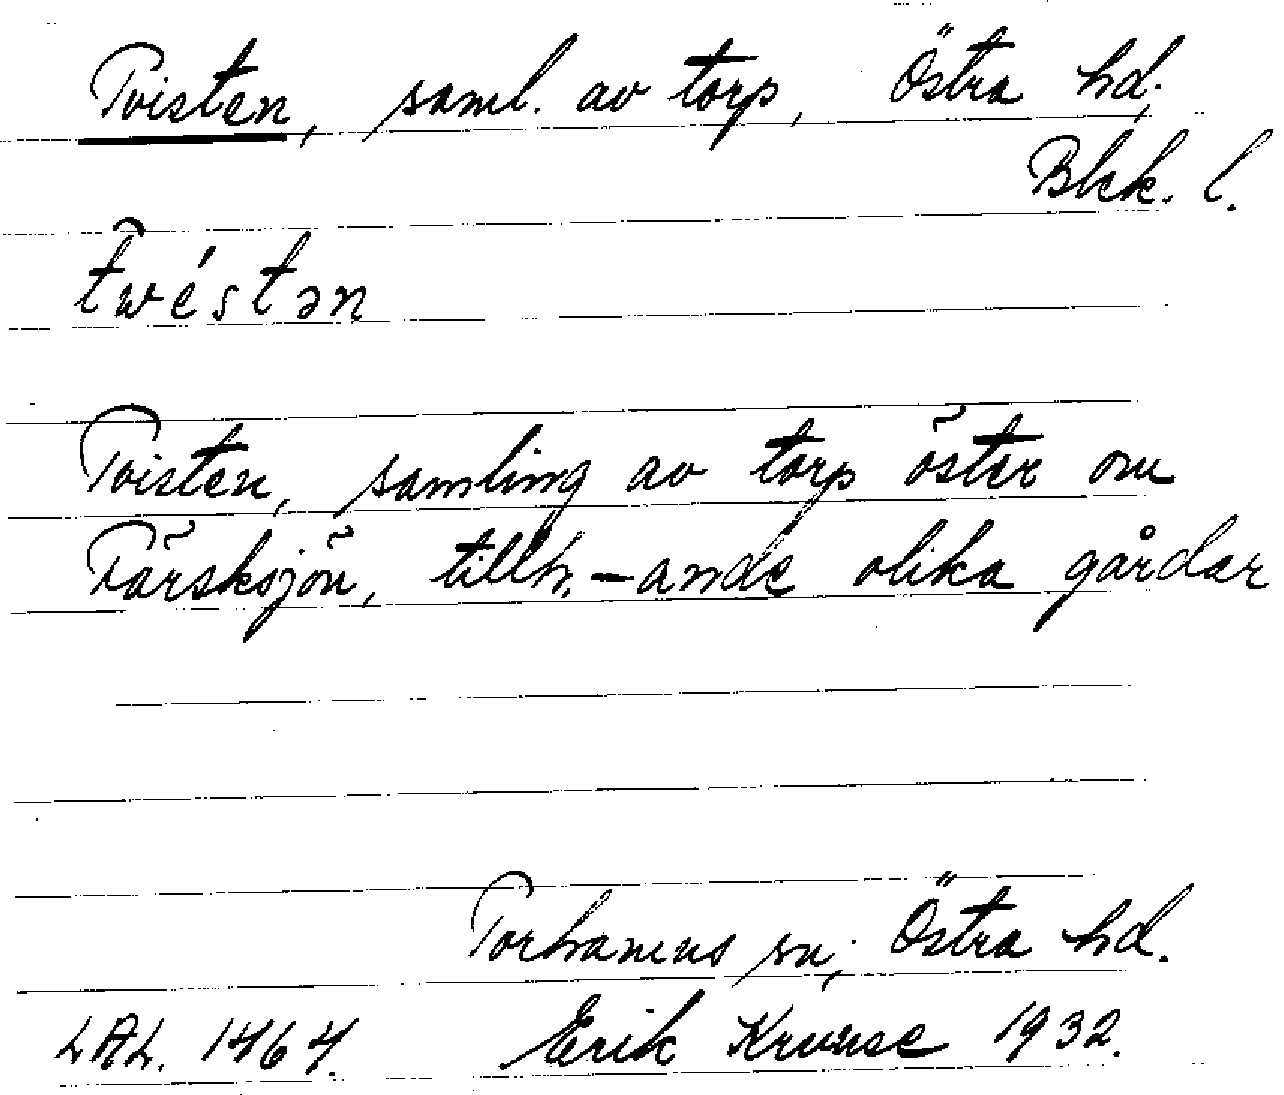 Tvisten, saml. av torp, Östra hd.
Blek. l.
twéstən
Tvisten, samling av torp öster om
Färsksjön, tillh.-ande olika gårdar
Torhamns sn, Östra hd.
LAL. 1464. Erik Kruuse 1932.